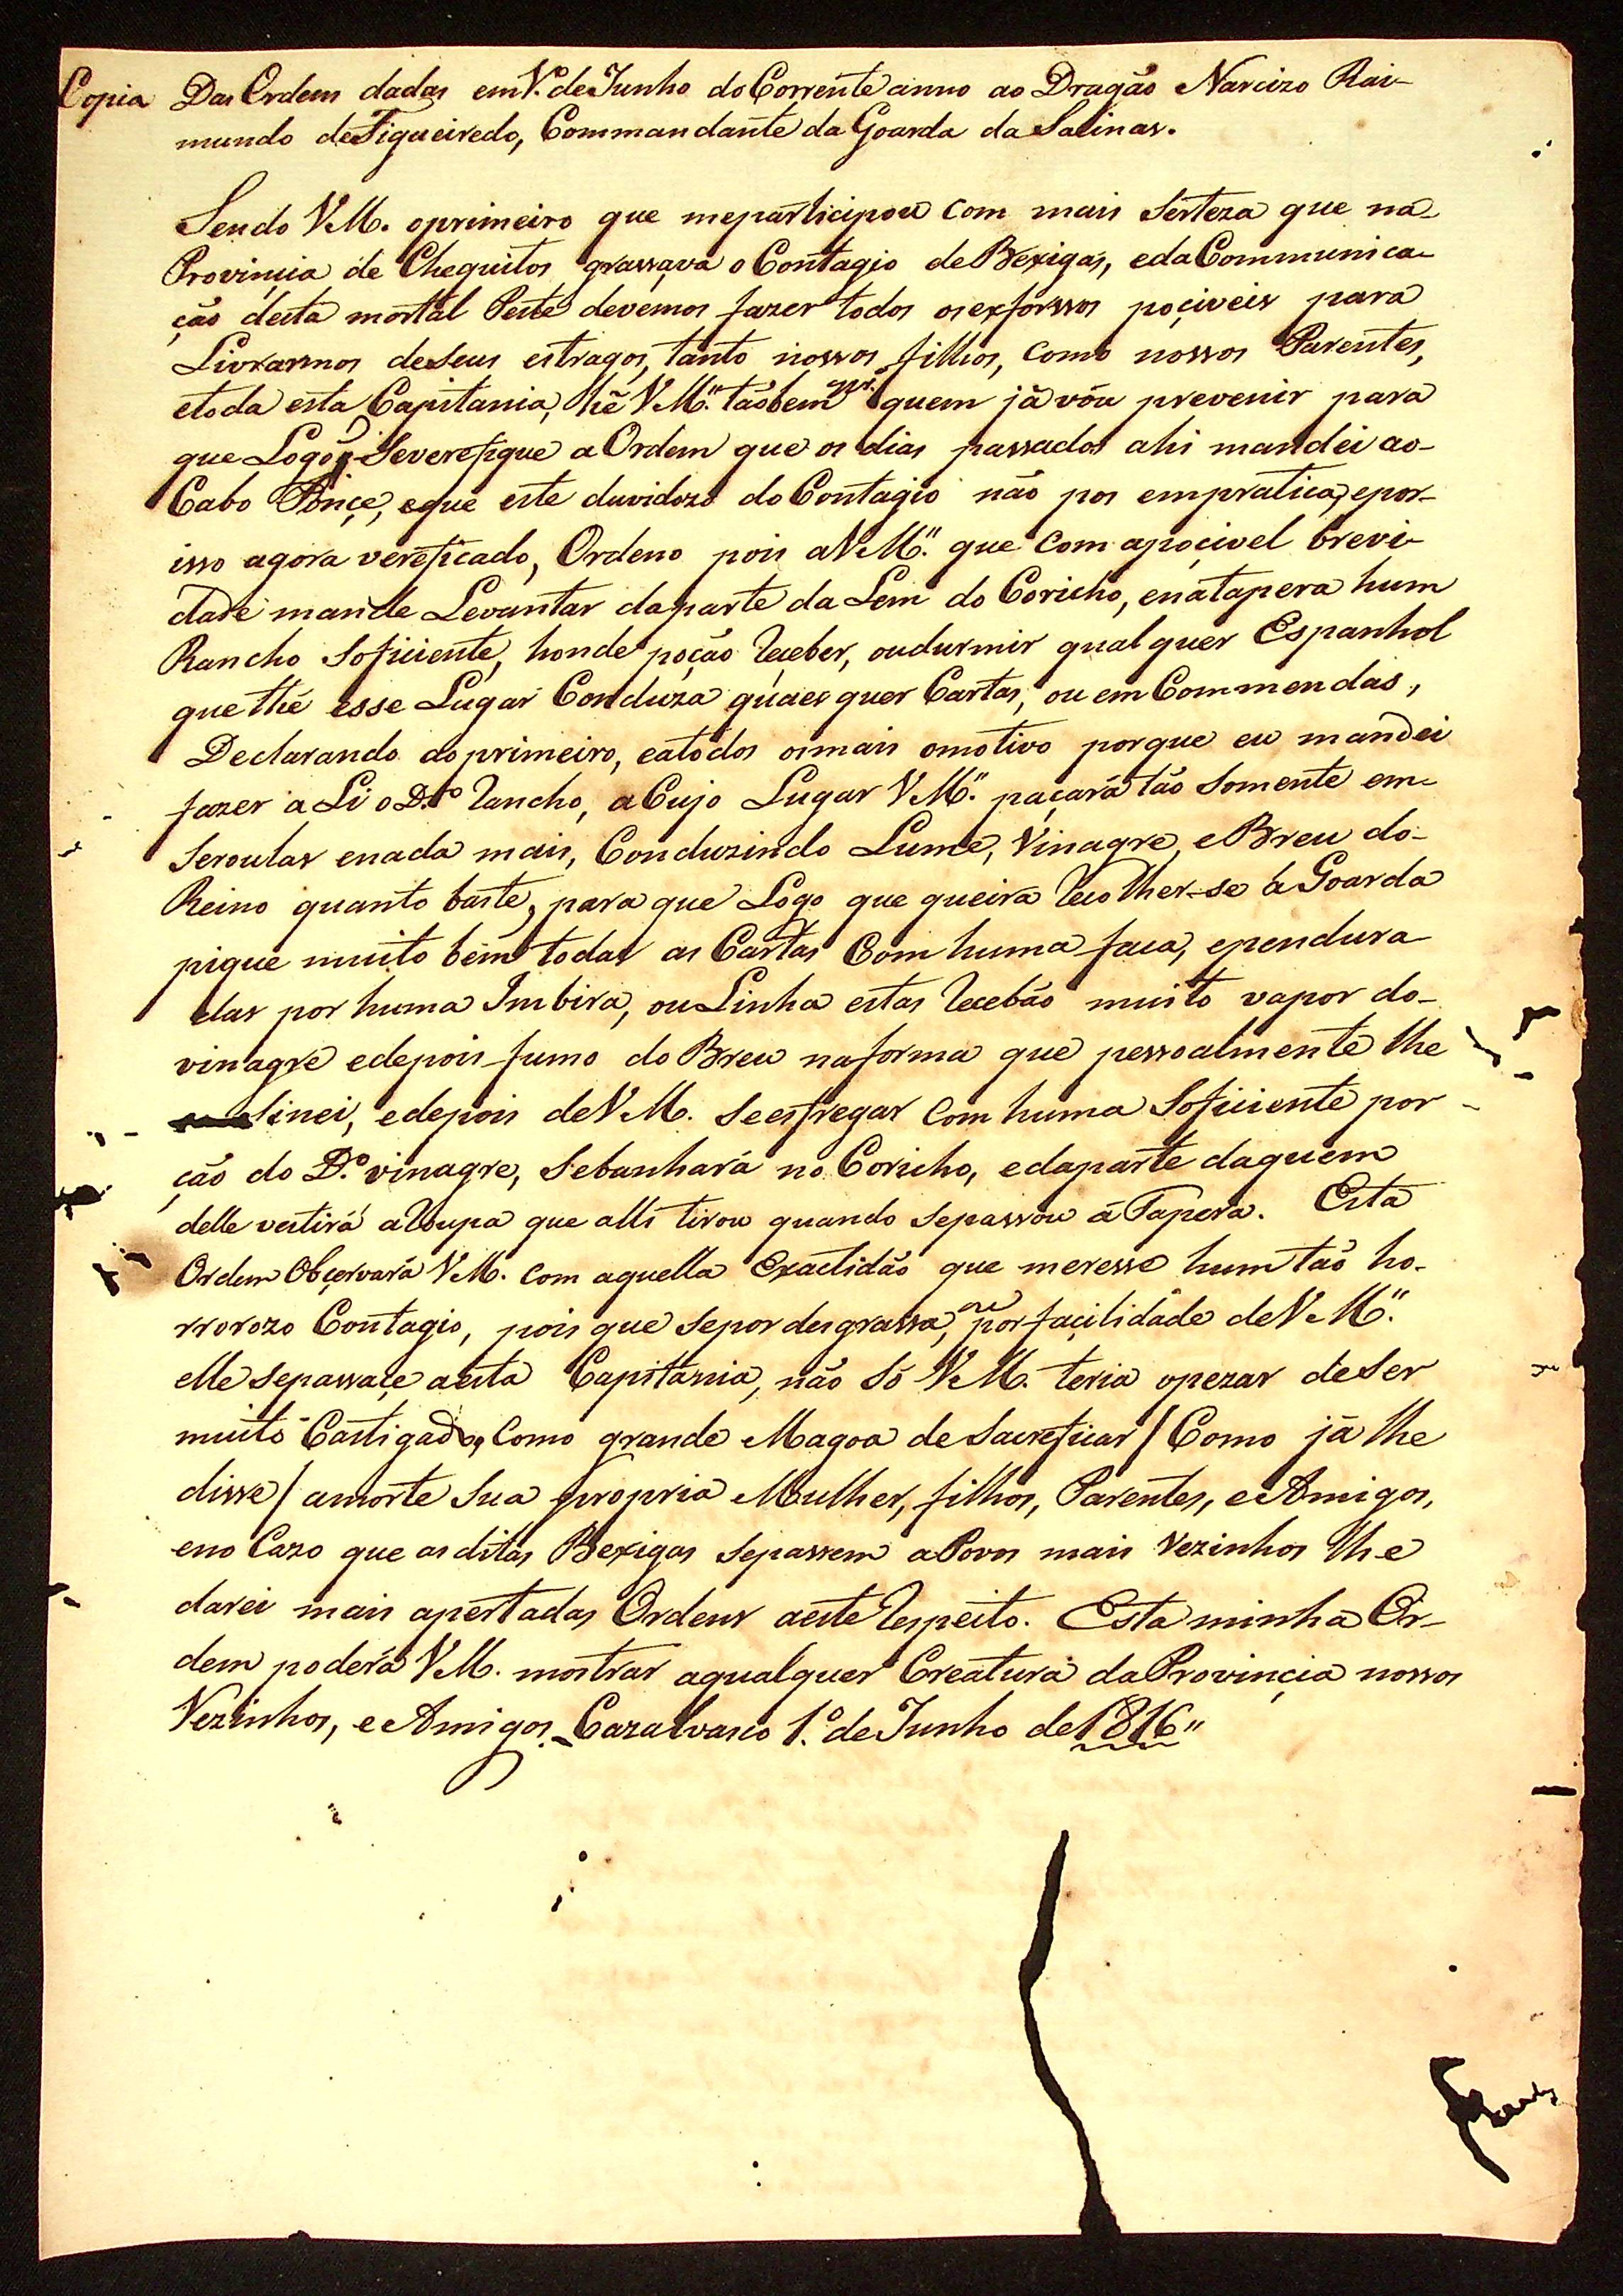 Copia Das Ordem dadas em 1º de Junho do Corrente anno ao Dragão Narcizo Rai-
mundo de Figueiredo, Commandante da Goarda da Salinas.
Sendo VM. oprimeiro que meparticipou com mais Serteza que na
Provinçia de Chequitos grassava o Contagio de Bexigas, eda Communica-
ção desta mortal Peste devemos fazer todos os exforssos poçiveis para
Livrarmos de Seus estragos, tanto nossos filhos, como nossos Parentes,
etoda esta Capitania, hé VMce. tãobem quem já vou prevenir para
que Logo Severefique a Ordem que os dias passados ahi mandei ao
Cabo Ponçe, eque este duvidozo do Contagio não pos empratica, epor-
isso agora vereficado, Ordeno pois aVMce. que com apoçivel brevi-
dade mande Levantar daparte da Lem do Coricho, enatapera hum
Rancho Soficiente, honde poção Receber, oudurmir qual quer Espanhol
que thé esse Lugar Conduza quaes quer Cartas, ou em Commendas,
Declarando ao primeiro, eatodos osmais omotivo porque eu mandei
fazer a Li o D.to Rancho, aCujo Lugar VMce. paçará tão Somente em
Seroulas enada mais, Conduzindo Lume, Vinagre, e Breu do
Reino quanto baste, para que Logo que queira Recolher-se á Goarda
pique muito bem todas as Cartas Com huma faca, ependura
das por huma Imbira, ou Linha estas Recebão muito vapor do
vinagre edepois fumo do Breu naforma que pessoalmente lhe
Sinei, edepois deVM. Seesfregar Com huma Soficiente por-
ção do D.º vinagre, Sebanhará no Coricho, edaparte daquem
delle vestirá aRoupa que alli tirou quando Sepassou á Tapera. Esta
Ordem Obçervará VM. com aquella Exactidão que meresse hum tão ho-
rrorozo Contagio, pois que Sepor desgrassa, ou porfaçilidade deVMce.
elle Sepassaçe aesta Capitania, não Só VM. teria opezar deSer
muito Castigado, como grande Magoa de Sacreficar / Como já lhe
disse / amorte Sua propria Mulher, filhos, Parentes, e Amigos,
eno Cazo que as ditas Bexigas Sepassem aPovos mais Vezinhos lhe
darei mais apertadas Ordens aeste Respeito. Esta minha Or-
dem poderá VM. mostrar aqualquer Creatura da Provinçia nossos
Vezinhos, e Amigos. Cazalvasco 1.º de Junho de 1816"